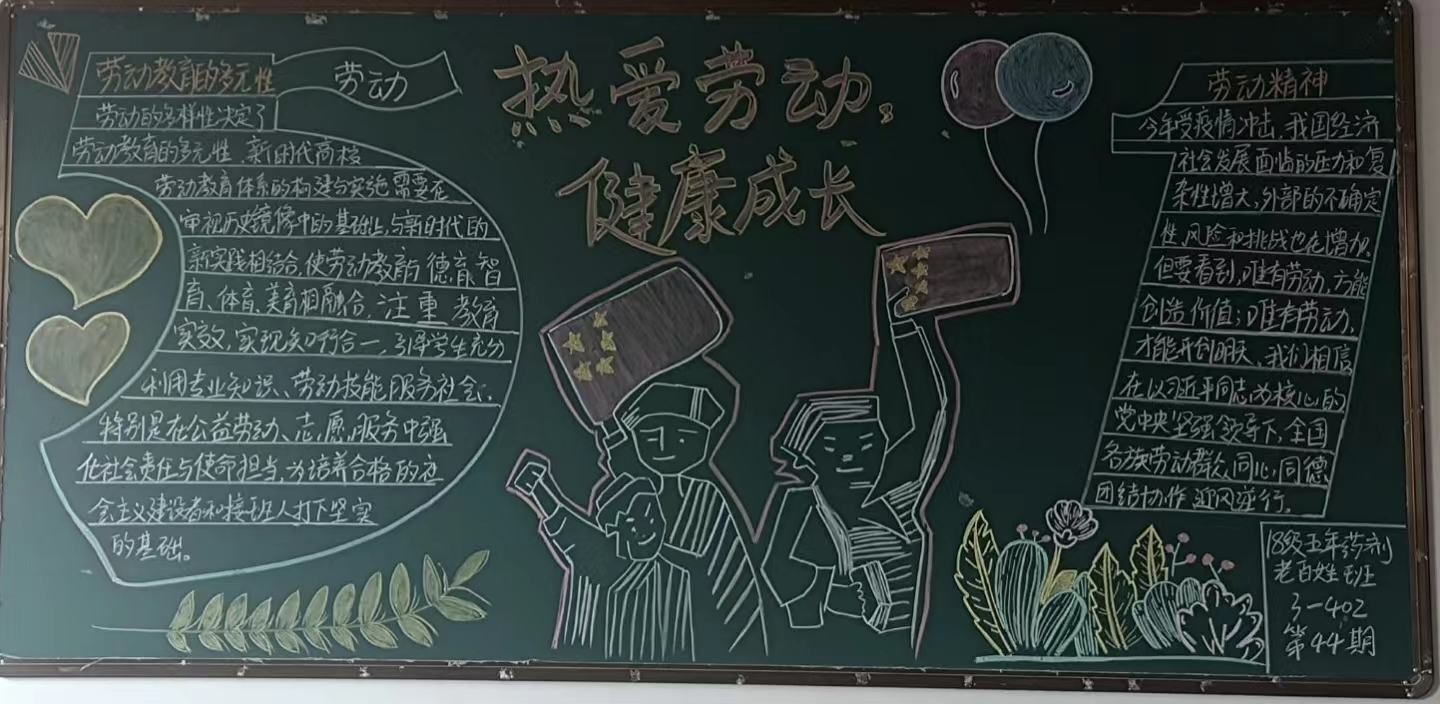 劳动教育的多元性
劳动
劳动的多样性决定了
劳动教育的多元性。新时代高校
劳动教育体系的构建与实施需要在
审视历史镜像中的基础上,与新时代的
新实践相结合,使劳动教育与德育、智
育、体育、美育相融合,注重教育
实效,实现知行合一,引导学生充分
利用专业知识、劳动技能服务社会,
特别是在公益劳动、志愿服务中强
化社会责任与使命担当,为培养合格的社
会主义建设者和接班人打下坚实
的基础。
热爱劳动,
健康成长
劳动精神
今年受疫情冲击,我国经济
社会发展面临的压力和复
杂性增大,外部的不确定
性、风险和挑战也在增加。
但要看到,唯有劳动,方能
创造价值;唯有劳动,
才能开创明天、我们相信
在以习近平同志为核心的
党中央坚强领导下,全国
各族劳动群众同心、同德、
团结协作 迎风逆行。
18级五年药剂
老百姓班
3-402
第44期